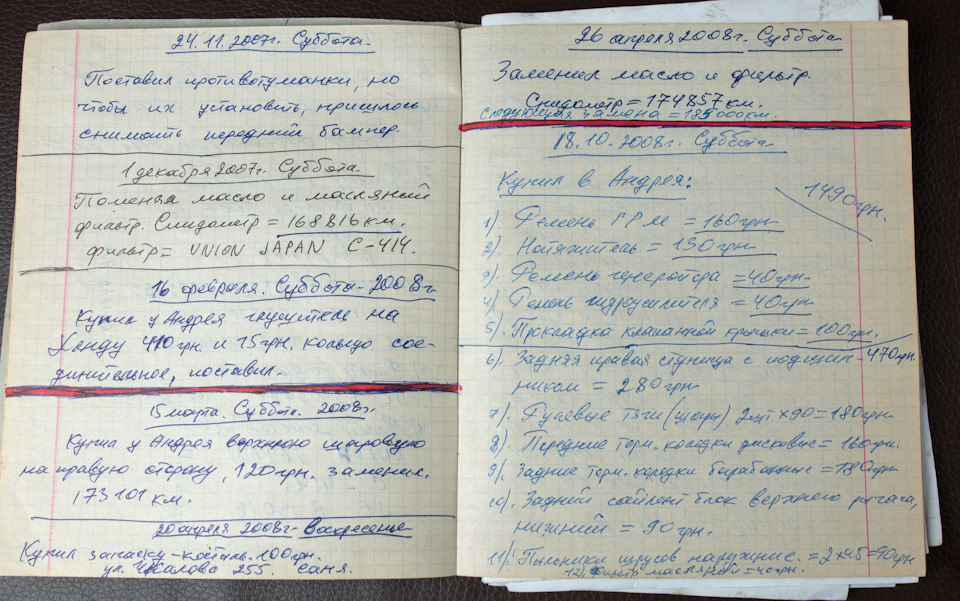 24.11.2007г. Суббота.
Поставил противотуманки, но
чтобы их установить, пришлось
снимать передний бампер.
1 декабря 2007г. Суббота.
Поменял масло и масляный
фильтр. Спидометр = 168816 км.
фильтр = UNION JAPAN C-414.
16 февраля. Суббота - 2008г.
Купил у Андрея глушитель на
Хонду 410грн. и 15грн. кольцо сое-
динительное, поставил.
15 марта. Суббота. 2008г.
Купил у Андрея верхнюю шаровую
на правую сторону, 120грн. заменил.
173101 км.
20 апреля 2008г. Воскресенье
Купил запаску-костыль-100грн.
ул. Чкалова 255. Саня.
26 апреля 2008г. Суббота
Заменил масло и фильтр.
Спидометр = 174857 км.
Следующая замена = 185000км.
18.10.2008г. Суббота.
Купил в Андрея:
1490грн.
1) Ремень ГРМ = 160грн
2). Натяжитель = 130грн
3). Ремень генератора = 40грн.
4). Ремень гидроусилителя = 40грн
5). Прокладка клапанной крышки = 100грн.
6). Задняя правая ступица с подшип- 470грн
ником = 280грн
7). Рулевые тяги (шары) 2шт. х 90 = 180грн
8). Передние торм. колодки дисковые = 160грн.
9). Задние торм. колодки барабанные = 180грн
10). Задний сайлент блок верхнего рычага,
нижний = 90грн.
11). Пыльники шрусов наружние. = 2х45 = 90грн
12). Фильтр масляной = 40грн.